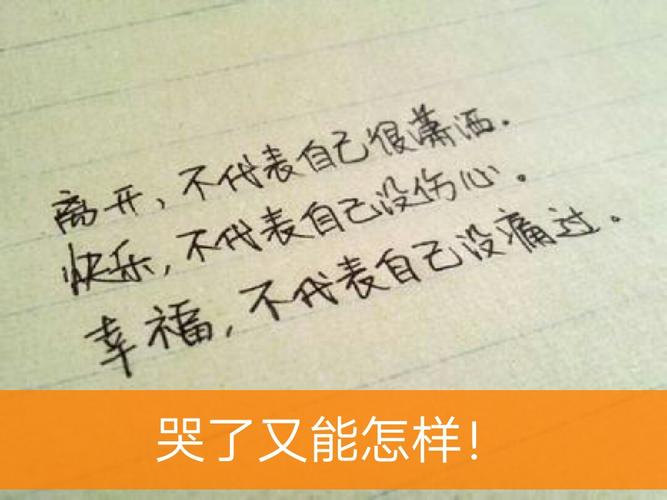 离开,不代表自己很潇洒.
快乐,不代表自己没伤心。
幸福,不代表自己没痛过。
哭了又能怎样!